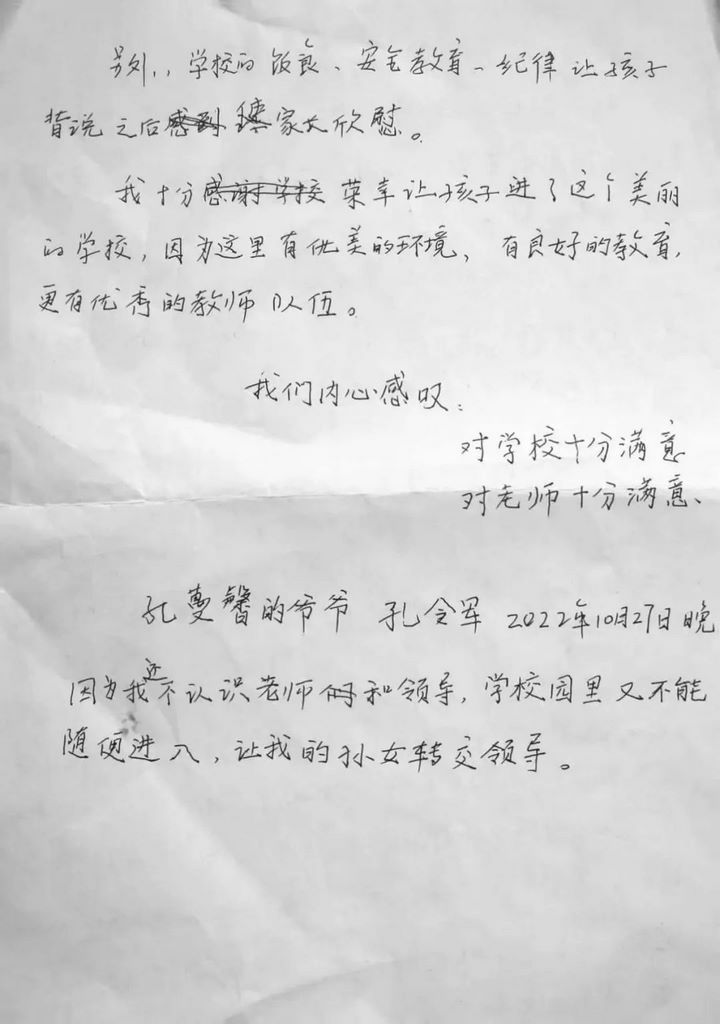 另外,,学校的饭食、安全教育、纪律让孩子
背说之后感到 家大欣慰。
我十分感谢学校荣幸让孩子进了这个美丽
的学校,因为这里有优美的环境、有良好的教育,
更有优秀的教师队伍。
我们内心感叹:
对学校十分满意
对老师十分满意、
孔蔓馨的爷爷 孔令军 2022年10月27日晚
因为我还不认识老师们和领导,学校园里又不能
随便进入,让我的孙女转交领导。